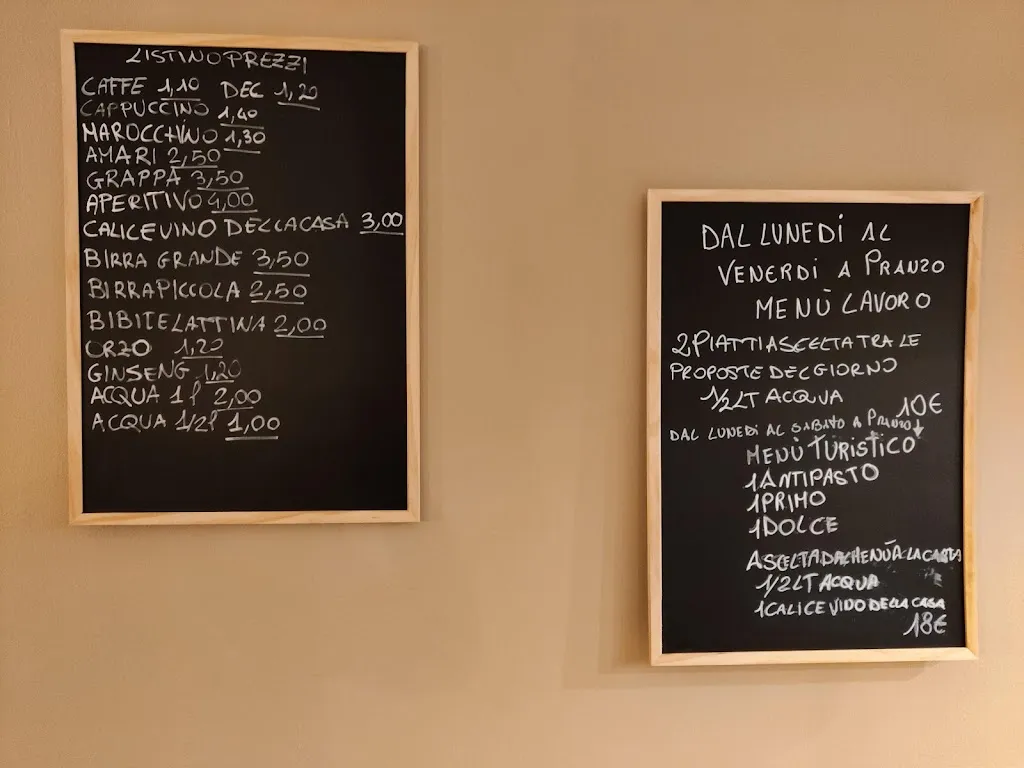 LISTINO PREZZI
CAFFE 1,10 DEC 1,20
CAPPUCCINO 1,40
MAROCCHINO 1,30
AMARI 2,50
GRAPPA 3,50
APERITIVO 4,00
CALICE VINO DELLA CASA 3,00
BIRRA GRANDE 3,50
BIRRA PICCOLA 2,50
BIBITE LATTINA 2,00
ORZO 1,20
GINSENG 1,20
ACQUA 1 l 2,00
ACQUA 1/2 l 1,00
DAL LUNEDÌ AL
VENERDÌ A PRANZO
MENÙ LAVORO
2 PIATTI A SCELTA TRA LE
PROPOSTE DEL GIORNO
1/2 LT ACQUA
10€
DAL LUNEDÌ AL SABATO A PRANZO ↓
MENÙ TURISTICO
1 ANTIPASTO
1 PRIMO
1 DOLCE
A SCELTA DA MENÙ A LA CARTA
1/2 LT ACQUA
1 CALICE VINO DELLA CASA
18€